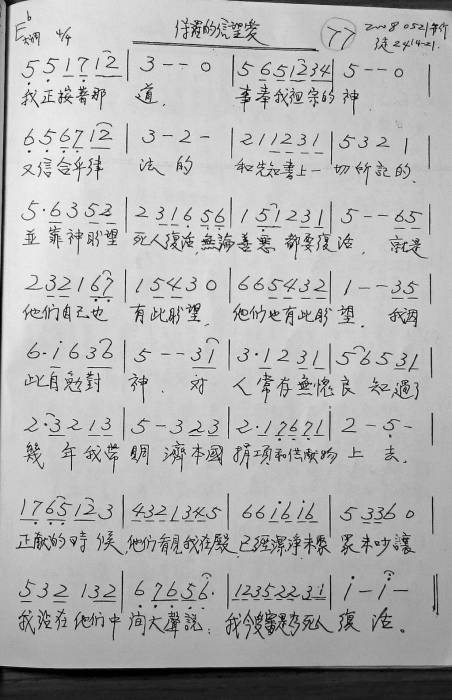 保羅的信望愛
♭E大調 4/4
77
20080521草作
徒24:14-21.
5 5 1 7 1 2 | 3 - - 0 | 5 6 5 1 2 3 4 | 5 - - 0 |
我正按著那 道. 事奉我祖宗的神.
6 5 6 7 1 2 | 3 - 2 - | 2 1 1 2 3 1 | 5 3 2 1 |
又信合乎律 法的 和先知書上一切所記的.
5 · 6 3 5 2 | 2 3 1 6 5 6 | 1 5 1 2 3 1 | 5 - - 6 5 |
並靠神盼望 死人復活,無論善惡 都要復活. 就是
2 3 2 1 6 7 | 1 5 4 3 0 | 6 6 5 4 3 2 | 1 - - 3 5 |
他們自己也 有此盼望. 他們也有此盼望. 我因
6 · i 6 3 6 | 5 - - 3 1 | 3 · 1 2 3 1 | 5 6 5 3 1 |
此自勉對 神. 對 人常存無愧良 知過了
2 · 3 2 1 3 | 5 - 3 2 3 | 2 · 1 7 6 7 1 | 2 - 5 - |
幾年我帶 賙濟本國 捐項和供獻物 上去.
1 7 6 5 1 2 3 | 4 3 2 1 3 4 5 | 6 6 i 6 i 6 | 5 3 3 6 0 |
正獻的時候,他們看見我在殿,已經潔淨未聚 眾未吵讓
5 3 2 1 3 2 | 6 7 6 5 6 · | 1 2 3 5 2 2 3 1 | i - i - ‖
我站在他們中間大聲說: 我今受審是為死人 復活。